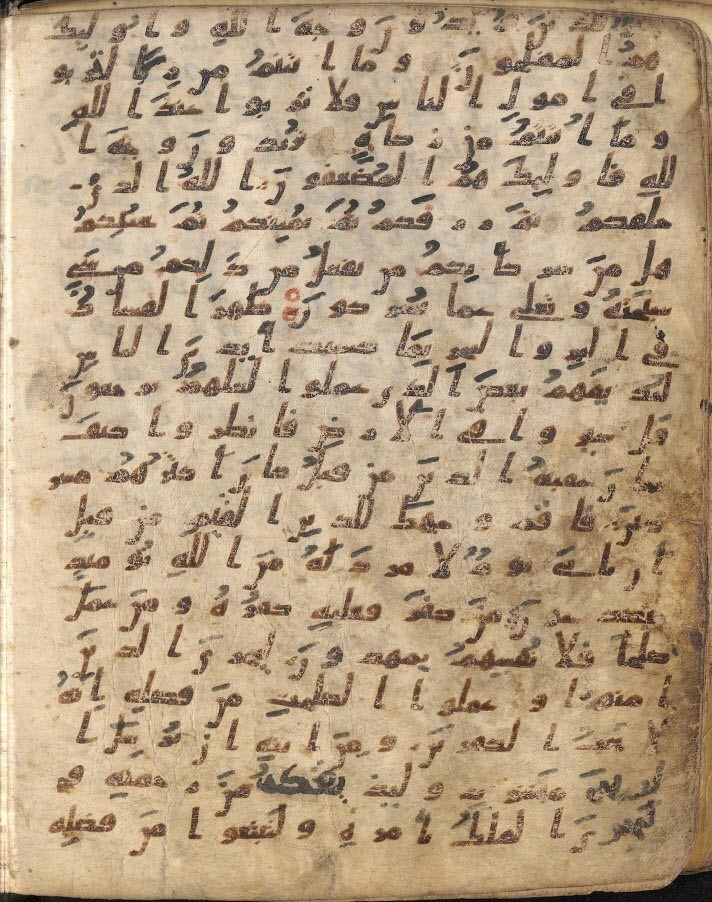 للذين يريدون وجه الله واوليك
هم المفلحون وما اتيتم من ربا ليربو
ا في امول الناس فلا يربوا عند الله
وما اتيتم من زكوه تريدون وجه ا
لله فاوليك هم المضعفون الله الذي
خلقكم ثم رزقكم ثم يميتكم ثم يحييكم
هل من شركايكم من يفعل من ذلكم من شي
سبحنه وتعلى عما يشركون ظهر الفساد
في البر والبحر بما كسبت ايدي الناس
ليذيقهم بعض الذي عملوا لعلهم يرجعون
قل سيروا في الارض فانظروا كيف
كان عقبه الذين من قبل كان اكثرهم مشر
كين فاقم وجهك للدين القيم من قبل
ان ياتي يوم لا مرد له من الله يوميذ
يصدعون من كفر فعليه كفره ومن عمل
صلحا فلانفسهم يمهدون ليجزي الذين
امنوا وعملوا الصلحت من فضله انه
لا يحب الكفرين ومن ايته ان يرسل ا
لريح مبشرت وليذيقكم من رحمته و
لتجري الفلك بامره ولتبتغوا من فضله